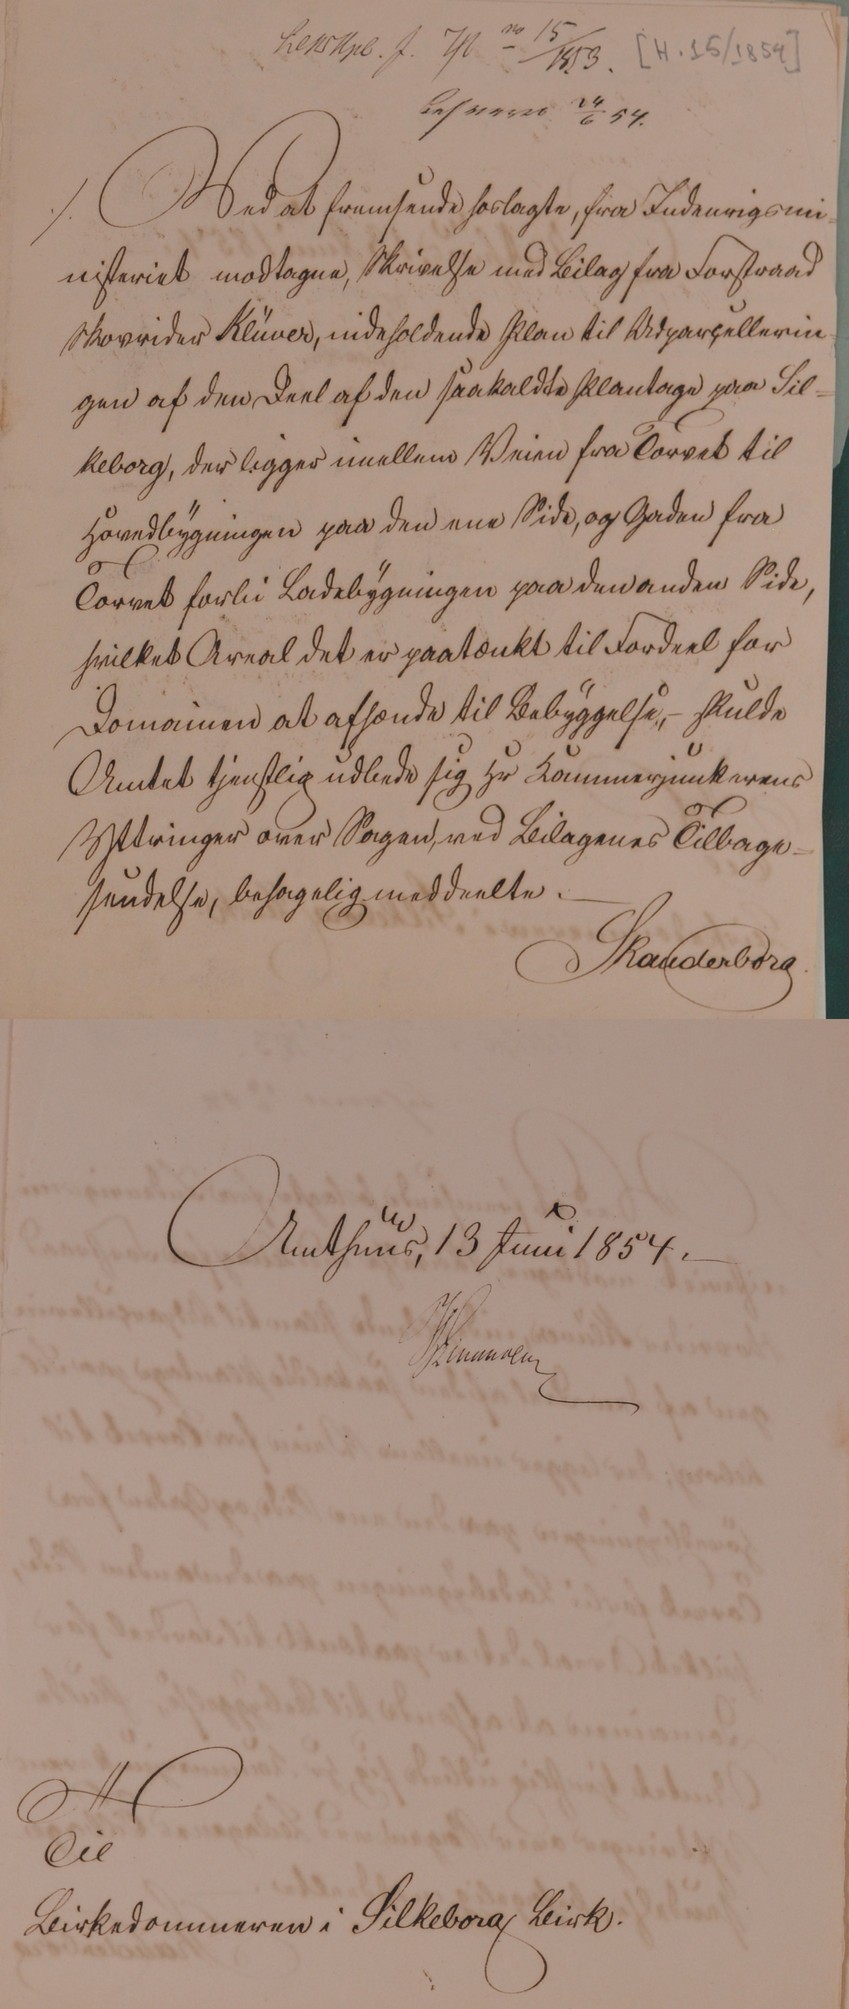 No 15/1853. [H. 15/1854]
24/6 54.
Ved at fremsende hoslagte, fra Indenrigsmi-
nisteriet modtagne, Skrivelse med Bilag fra Forstraad
Skovrider Klüver, indeholdende Plan til Udparcellerin-
gen af den Deel af den saakaldte Plantage paa Sil-
keborg, der ligger imellem Veien fra Torvet til
Hovedbygningen paa den ene Side, og Gaden fra
Torvet forbi Ladebygningen paa den anden Side,
hvilket Areal det er paatænkt til Fordeel for
Domainen at afhænde til Bebyggelse, – skulde
Amtet tjenstlig udbede sig Hr Kammerjunkerens
Yttringer over Sagen, ved Bilagenes Tilbage-
sendelse, behagelig meddeelte. —
Skanderborg
Amthuus, 13 Juni 1854. —
Til
Birkedommeren i Silkeborg Birk.